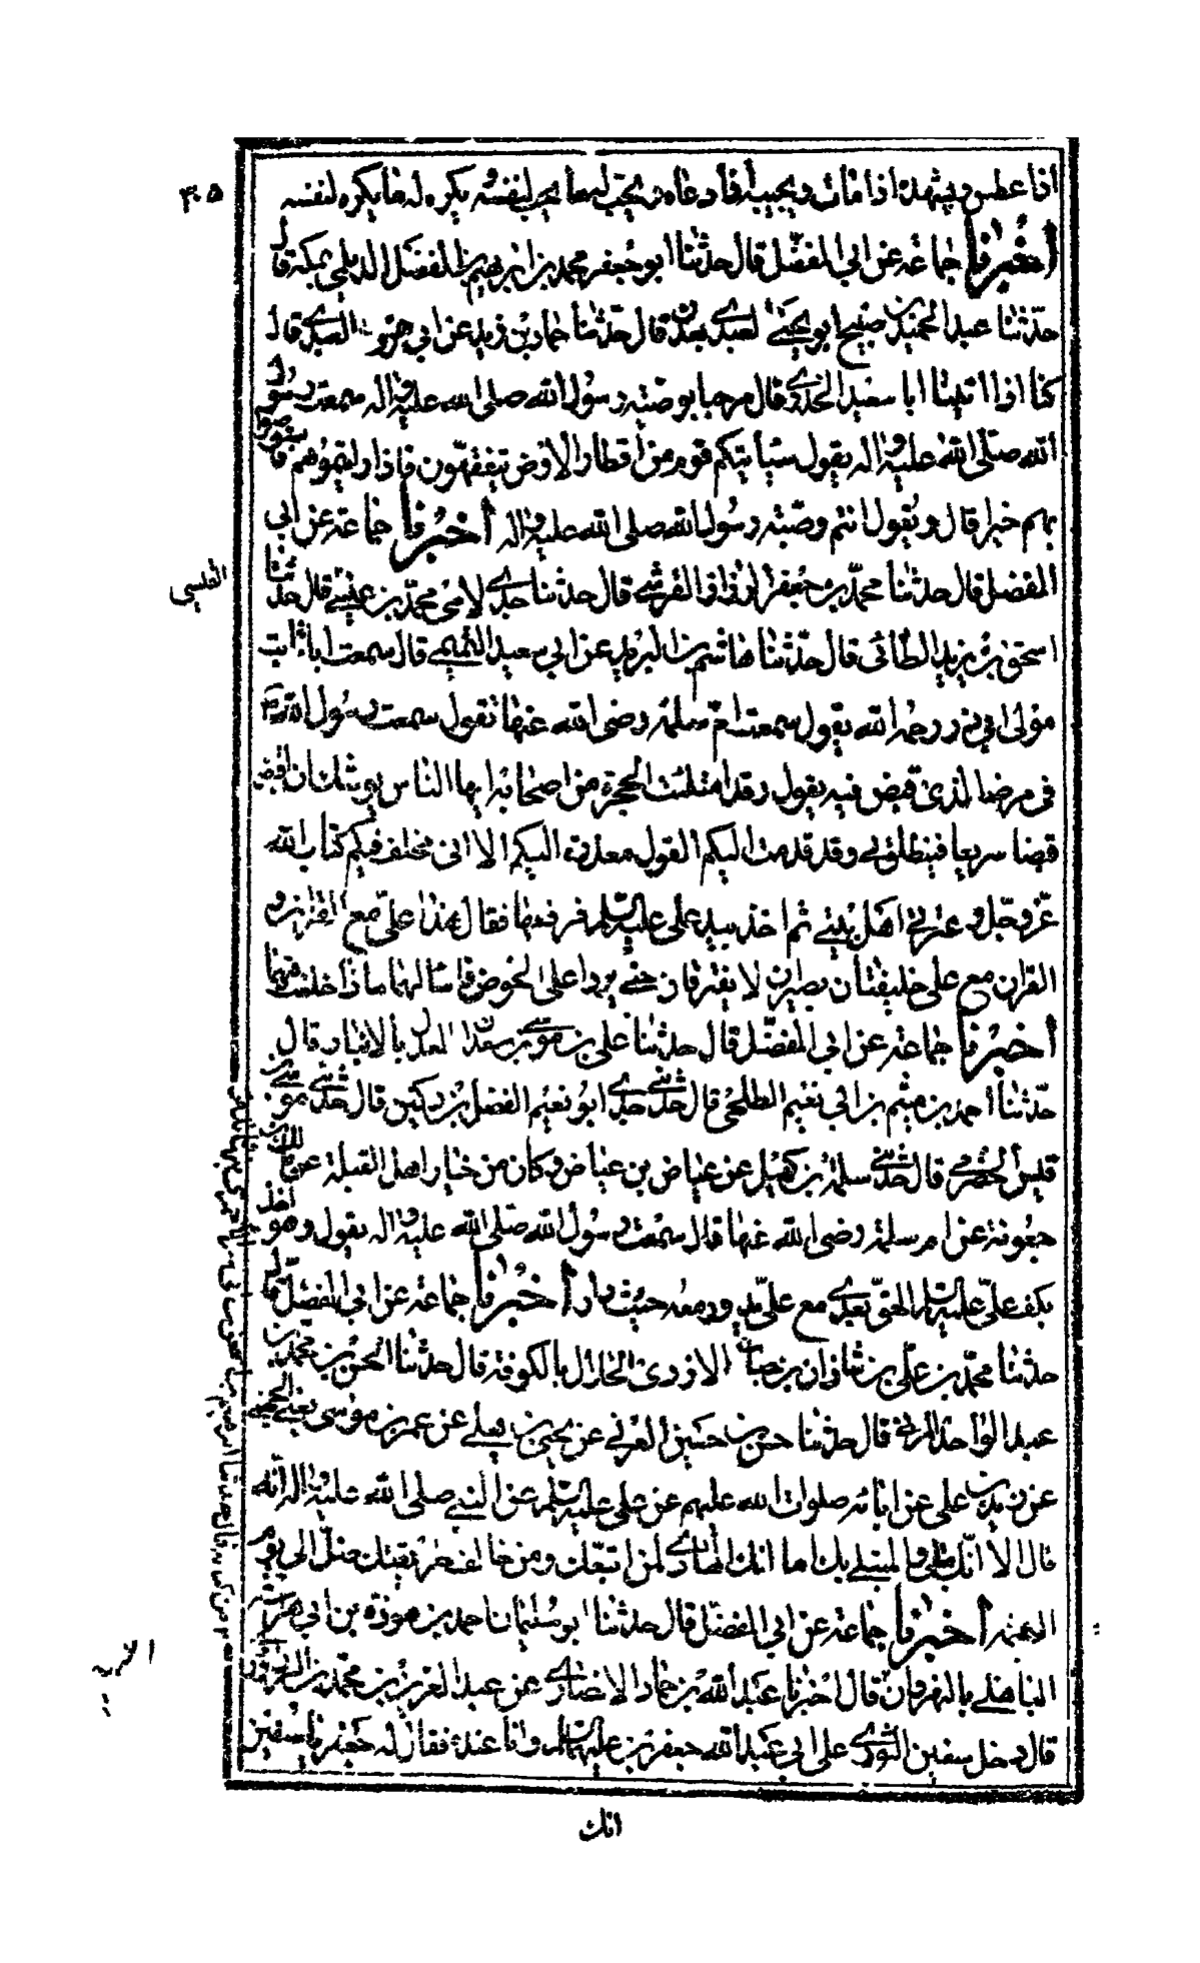 ۳۰۵
اذا عطس ويشهده اذا مات ويجيبه اذا دعاه ويحب له ما يحب لنفسه ويكره له ما يكره لنفسه
أخبرنا جماعة عن ابي المفضل قال حدثنا ابو جعفر محمد بن ابرهيم بن المفضل الديلي بمكة قال
حدثنا عبد الحميد بن صبيح ابو يحيى العبدي بعبدان قال حدثنا حماد بن زيد عن ابي هرون العبدي قال
كنا اذا اتينا ابا سعيد الخدري قال مرحبا بوصية رسول الله صلى الله عليه واله سمعت رسول
الله صلى الله عليه واله يقول سياتيكم قوم من أقطار الارض يتفقهون فاذا رايتموهم فاستوصوا
بهم خيرا قال ويقول انتم وصية رسول الله صلى الله عليه واله أخبرنا جماعة عن ابي
المفضل قال حدثنا محمد بن جعفر الرزاز القرشي قال حدثنا جدي لامي محمد بن عيسى قال حدثنا
القيسي
اسحق بن يزيد الطائي قال حدثنا هاشم بن البريد عن ابي سعيد التميمي قال سمعت ابا ثابت
مولى ابي ذر رحمه الله يقول سمعت ام سلمة رضى الله عنها تقول سمعت رسول الله ص
في مرضه الذي قبض فيه يقول وقد امتلئت الحجرة من اصحابه ايها الناس يوشك ان اقبض
قبضا سريعا فينطلق بي وقد قدمت اليكم القول معذرة اليكم الا اني مخلف فيكم كتاب الله
عز وجل وعترتي اهل بيتي ثم اخذ بيد علي عليه السلم فرفعها فقال هذا علي مع القران و
القران مع علي خليفتان بصيران لا يفترقان حتى يردا على الحوض فاسالهما ماذا خلفت فيهما
أخبرنا جماعة عن ابي المفضل قال حدثنا علي بن موسى بن سعدان المعدل بالانبار قال
حدثنا احمد بن ميثم بن ابي نعيم الطلحي قال حدثني جدي ابو نعيم الفضل بن دكين قال حدثني موسى بن
قيس الحضرمي قال حدثني سلمة بن كهيل عن عياض بن عياض وكان من خيار اهل القبلة عن مالك بن
جعونة عن ام سلمة رضى الله عنها قال سمعت رسول الله صلى الله عليه واله يقول وهو اخذ
بكف علي عليه السلم الحق بعدي مع علي يدور معه حيث دار أخبرنا جماعة عن ابي المفضل قال
حدثنا محمد بن علي بن شاذان بن حباب الازدى الخلال بالكوفة قال حدثنا الحسن بن محمد بن
عبد الواحد المزني قال حدثنا حسن بن حسين العرني عن يحيى بن يعلي عن عمر بن موسى يعني الوجيهي
عن زيد بن علي عن ابائه صلوات الله عليهم عن علي عليه السلم عن النبي صلى الله عليه واله انه
قال الا انك المبتلي والمبتلى بك اما انك الهادي لمن اتبعك ومن خالف طريقتك ضل الى يوم
القيمة أخبرنا جماعة عن ابي المفضل قال حدثنا ابو سليمان احمد بن هوذة بن ابي هراسة
الباهلي بالنهروان قال اخبرنا ابراهيم بن اسحق عبد الله بن حماد الانصاري عن عبد العزيز بن محمد
قال دخل سفين الثوري على ابي عبد الله جعفر بن عليه السلم وانا عنده فقال له جعفر يا سفين
انك